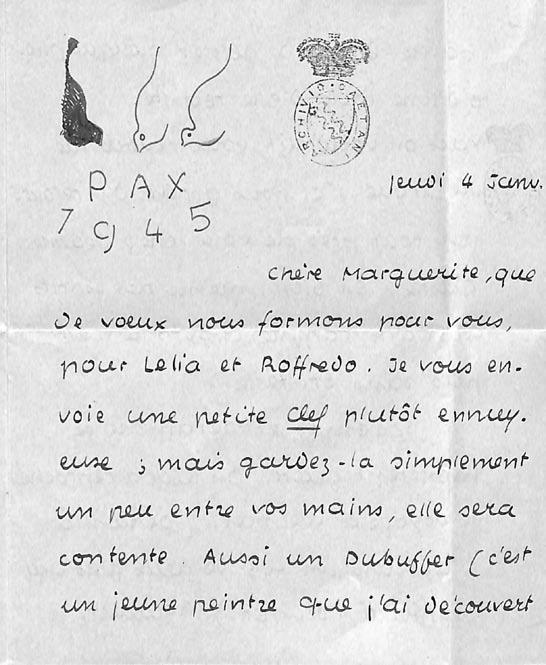 ARCHIVIO · CAETANI
PAX
1945
jeudi 4 janv.
chère Marguerite, que
de voeux nous formons pour vous,
pour Lelia et Roffredo. Je vous en-
voie une petite clef plutôt ennuy-
euse ; mais gardez-la simplement
un peu entre vos mains, elle sera
contente. Aussi un Dubuffet (c'est
un jeune peintre que j'ai découvert